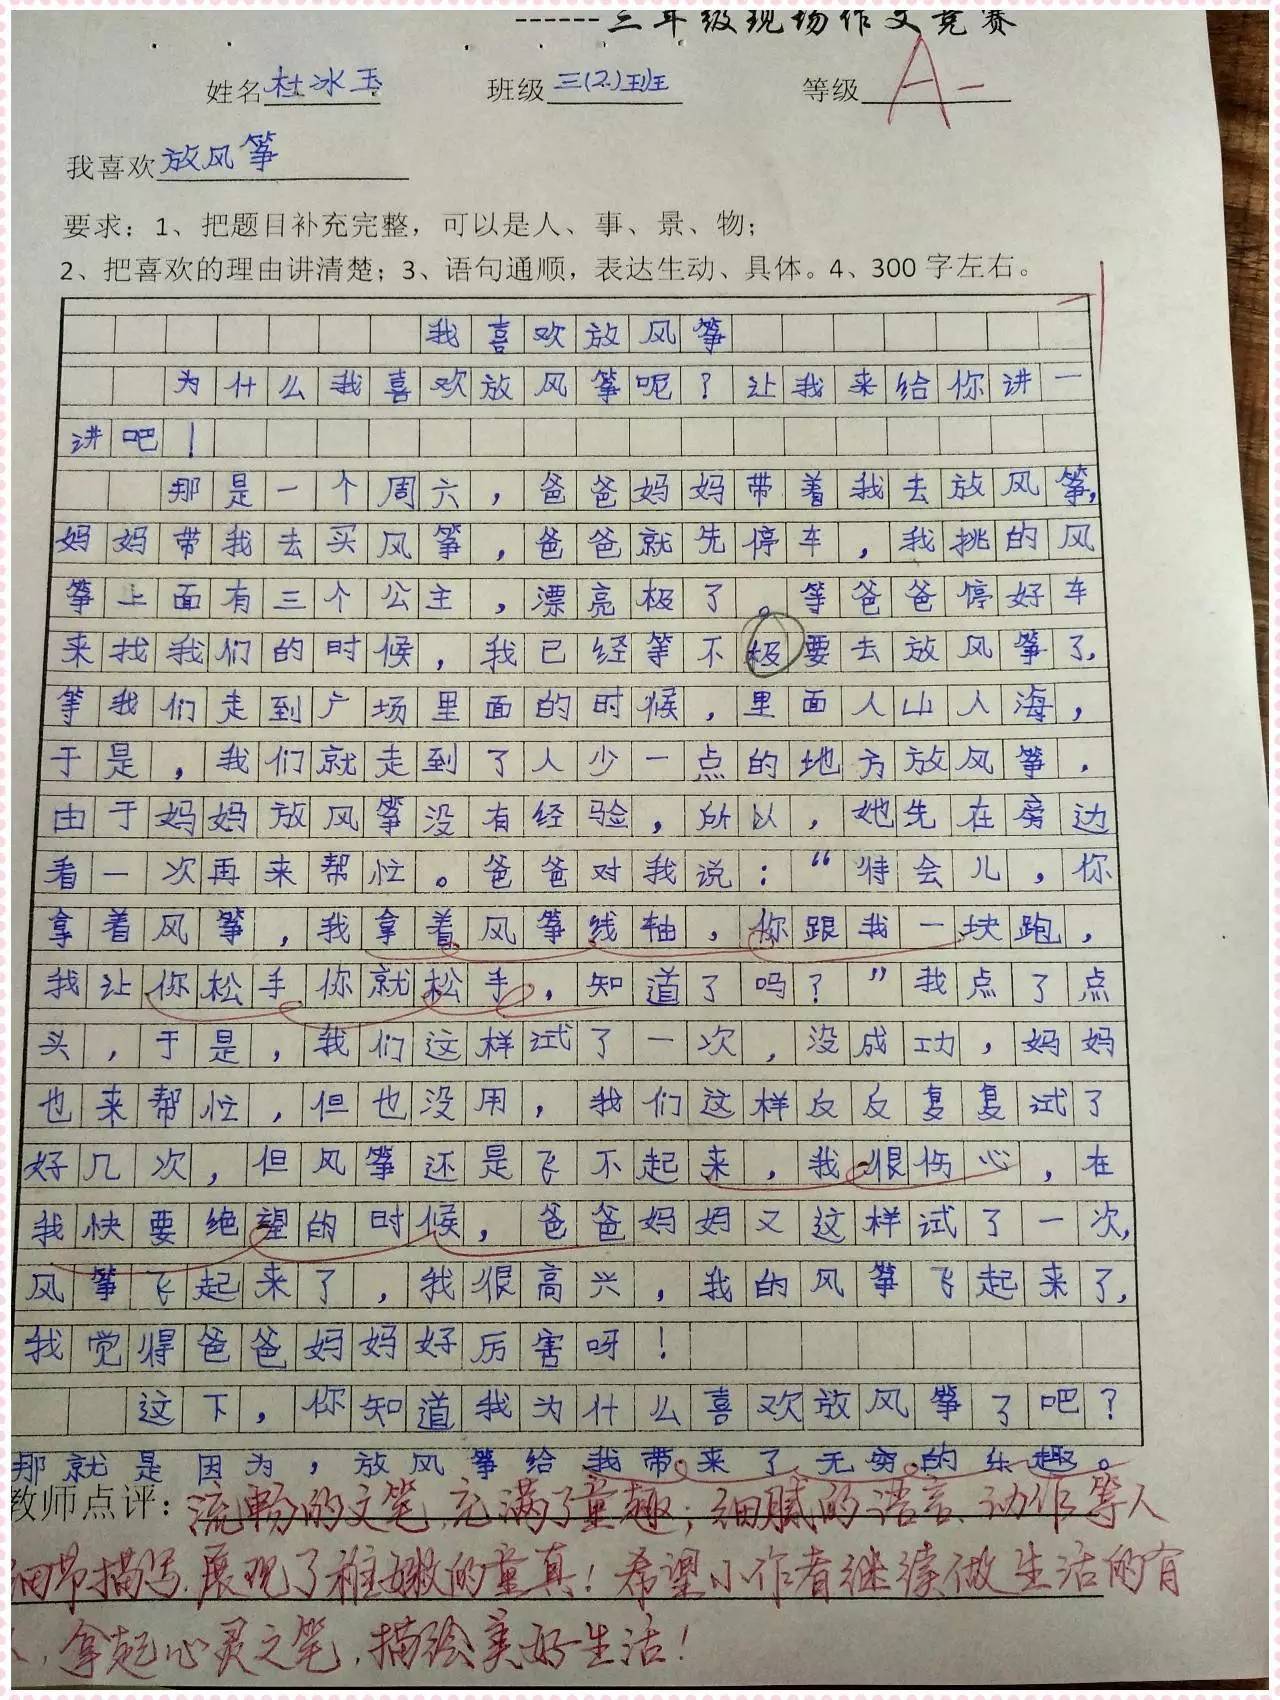 ------三年级现场作文竞赛
姓名杜冰玉 班级三(2)班 等级A-
我喜欢放风筝
要求：1、把题目补充完整，可以是人、事、景、物；
2、把喜欢的理由讲清楚；3、语句通顺，表达生动、具体。4、300字左右。
我喜欢放风筝
为什么我喜欢放风筝呢？让我来给你讲一
讲吧！
那是一个周六，爸爸妈妈带着我去放风筝，
妈妈带我去买风筝，爸爸就先停车，我挑的风
筝上面有三个公主，漂亮极了。等爸爸停好车
来找我们的时候，我已经等不极要去放风筝了，
等我们走到广场里面的时候，里面人山人海，
于是，我们就走到了人少一点的地方放风筝，
由于妈妈放风筝没有经验，所以，她先在旁边
看一次再来帮忙。爸爸对我说：“待会儿，你
拿着风筝，我拿着风筝线轴，你跟我一块跑，
我让你松手你就松手，知道了吗？”我点了点
头，于是，我们这样试了一次，没成功，妈妈
也来帮忙，但也没用，我们这样反反复复试了
好几次，但风筝还是飞不起来，我很伤心，在
我快要绝望的时候，爸爸妈妈又这样试了一次，
风筝飞起来了，我很高兴，我的风筝飞起来了，
我觉得爸爸妈妈好厉害呀！
这下，你知道我为什么喜欢放风筝了吧？
那就是因为，放风筝给我带来了无穷的乐趣。
教师点评：流畅的文笔，充满了童趣；细腻的语言、动作等人
细节描写，展现了稚嫩的童真！希望小作者继续做生活的有
，拿起心灵之笔，描绘美好生活！